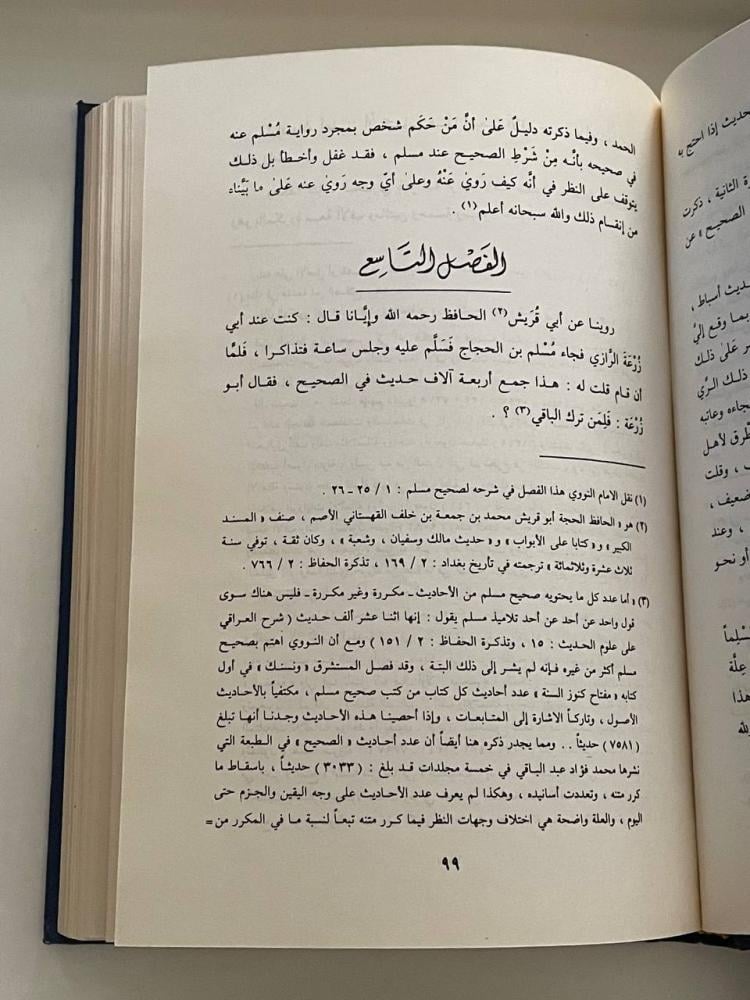 الحمد ، وفيما ذكرته دليلٌ عَلىٰ أنَّ مَنْ حَكَم شخص بمجرد رواية مُسْلم عنه
في صحيحه بأنَّه مِنْ شَرْطِ الصحيح عند مسلم ، فقد غفل وأخطأ بل ذلك
يتوقف على النظر في أنَّه كيف رَويٰ عَنْهُ وعلى أيّ وجه رَويٰ عنه عَلىٰ ما بَيَّناه
من إنقسام ذلك والله سبحانه أعلم(١) .
الفصل التاسع
روينا عن أبي قُرَيش(٢) الحافظ رحمه الله وإيَّانا قال : كنت عند أبي
زُرْعَةَ الرَّازي فجاء مُسْلم بن الحجاج فَسَلَّم عليه وجلس ساعة فتذاكرا ، فَلمَّا
أن قام قلت له : هذا جمع أربعة آلاف حديث في الصحيح ، فقال أبو
زُرْعة : فَلِمَن ترك الباقي(٣) ؟ .
(١) نقل الامام النووي هذا الفصل في شرحه لصحيح مسلم : ١ / ٢٥ - ٢٦ .
(٢) هو « الحافظ الحجة أبو قريش محمد بن جمعة بن خلف القهستاني الأصم ، صنف « المسند
الكبير » و « كتابا على الأبواب » و « حديث مالك وسفيان ، وشعبة » ، وكان ثقة ، توفي سنة
ثلاث عشرة وثلاثمائة » ترجمته في تأريخ بغداد : ٢ / ١٦٩ ، تذكرة الحفاظ : ٢ / ٧٦٦ .
(٣) « أما عدد كل ما يحتويه صحيح مسلم من الأحاديث ـ مكررة وغير مكررة ـ فليس هناك سوى
قول واحد عن أحد عن أحد تلاميذ مسلم يقول : إنها اثنا عشر ألف حديث ( شرح العراقي
على علوم الحديث : ١٥ ، وتذكرة الحفاظ : ٢ / ١٥١ ) ومع أن النووي اهتم بصحيح
مسلم أكثر من غيره فإنه لم يشر إلى ذلك البتة ، وقد فصل المستشرق « ونسنك » في أول
كتابه « مفتاح كنوز السنة » عدد أحاديث كل كتاب من كتب صحيح مسلم ، مكتفياً بالأحاديث
الأصول ، وتاركاً الاشارة إلى المتابعات ، وإذا أحصينا هذه الأحاديث وجدنا أنها تبلغ
(٧٥٨١) حديثاً .. ومما يجدر ذكره هنا أيضاً أن عدد أحاديث « الصحيح » في الطبعة التي
نشرها محمد فؤاد عبد الباقي في خمسة مجلدات قد بلغ : (٣٠٣٣) حديثاً ، باسقاط ما
كرر متنه ، وتعددت أسانيده ، وهكذا لم يعرف عدد الأحاديث على وجه اليقين والجزم حتى
اليوم ، والعلة واضحة هي اختلاف وجهات النظر فيما كرر متنه تبعاً لنسبة ما في المكرر من =
٩٩
حديث إذا احتج به
الثانية ، ذكرت
الصحيح » عن
حديث أسباط ،
بما وقع إليَّ
عَلىٰ ذلك
ذلك
وعاتبه
لأهل
، وقلت
ضعيف ،
، وعند
أو نحو
مُسْلِماً
عِلَّة
هذا
لله